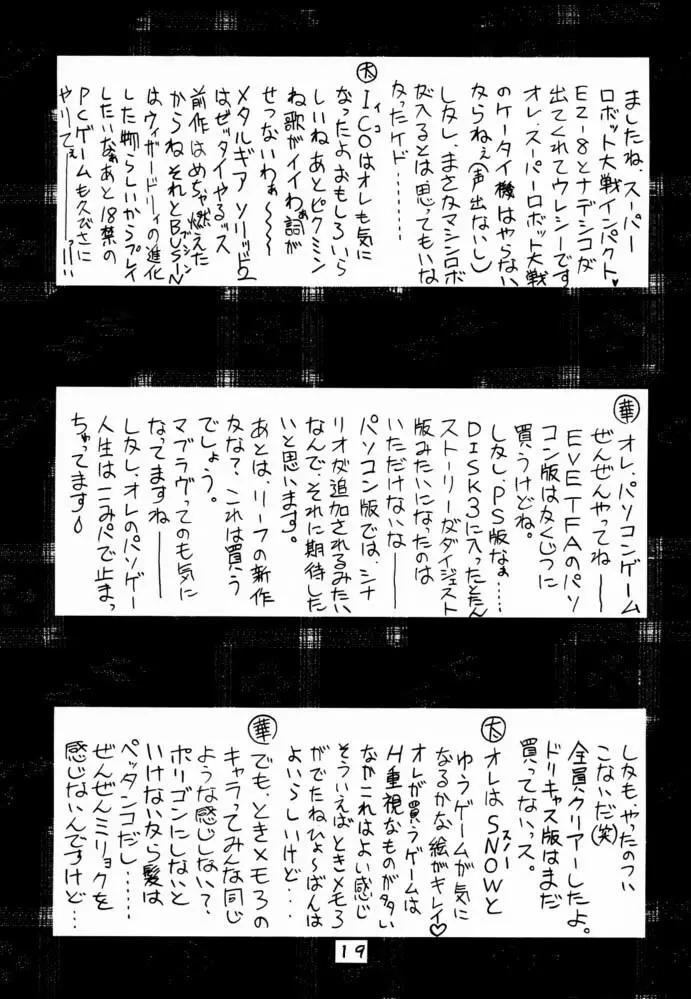 ましたね、スーパー
ロボット大戦インパクト♡
EZ-8とナデシコが
出てくれてウレシーです
オレ、スーパーロボット大戦
のケータイ機はやらない
ならねぇ(声出ないし)
しかし、まさかマシンロボ
が入るとは思ってもいな
なったケド………
太
ICOはオレも気に
イコ
なったよおもしろいら
しいねあとピクミン
ね歌がイイわぁ詞が
せつないわぁ〜〜〜
メタルギアソリッド2
はゼッタイやるッス
前作はめちゃ燃えた
からねそれとBUSIN
ブシン
はウィザードリィの進化
した物らしいからプレイ
したいなぁあと18禁の
PCゲームも久びさに
やりてぇ———っ!!
華
オレ、パソコンゲーム
ぜんぜんやってねー
EVE TFAのパソ
コン版はかくじつに
買うけどね。
しかし、PS版なぁ……
DISK3に入ったとたん
ストーリーがダイジェスト
版みたいになったのは
いただけないなー
パソコン版では、シナ
リオが追加されるみたい
なんで、それに期待した
いと思います。
あとは、リーフの新作
かな?、これは買う
でしょう。
マブラヴってのも気に
なってますねー
しかし、オレのパソゲー
人生はこみパで止まっ
ちゃってます
しかも、やったのつい
こないだ(笑)
全員クリアーしたよ。
ドリキャス版はまだ
買ってないっス。
太
オレはSNOWと
スノー
ゆうゲームが気に
なるかな絵がキレイ♡
オレが買うゲームは
H重視なものが多い
なかこれはよい感じ
そういえばときメモ3
がでたねひょ〜ばんは
よいらしいけど…
華
でも、ときメモ3の
キャラってみんな同じ
ような感じしない?
ポリゴンにしないと
いけないから髪は
ペッタンコだし……
ぜんぜんミリョクを
感じないんですけど…
19